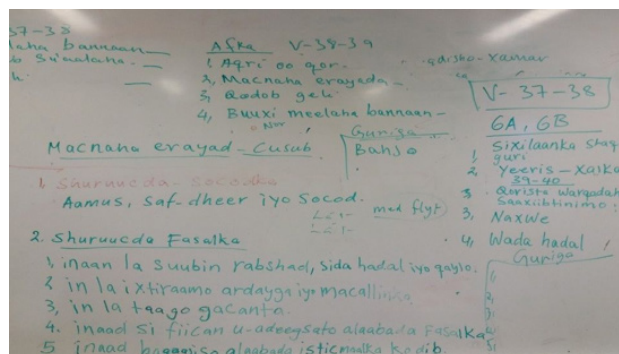 37-38
bannaan
Afka V-38-39
1, Aqri oo qor.
2, Macnaha erayada
3, Qodob geli
4, Buuxi meelaha bannaan
qarsho-xamar
V-37-38
Guriga
Macnaha erayad-Cusub
1. Shuruucda-Socodka
Aamus, Saf-dheer iyo Socod.
med flyt
2. Shuruucda Fasalka
1, inaan la Suubin rabshad, sida hadal iyo qaylo.
2 in la ixtiraamo ardayga iyo macallinka
3, in la taago gacanta.
4. inaad si fiican u-adeegsato alaabada Fasalka
5 inaad alaabada isticmaalka kadib.
6A, 6B
1, Sixilaanka
guri
2, Yeeris-Xalka
39-40
3 Qorista Warqadah
Saaxiibtinimo:
3, NaXwe
4, Wada hadal
Guriga